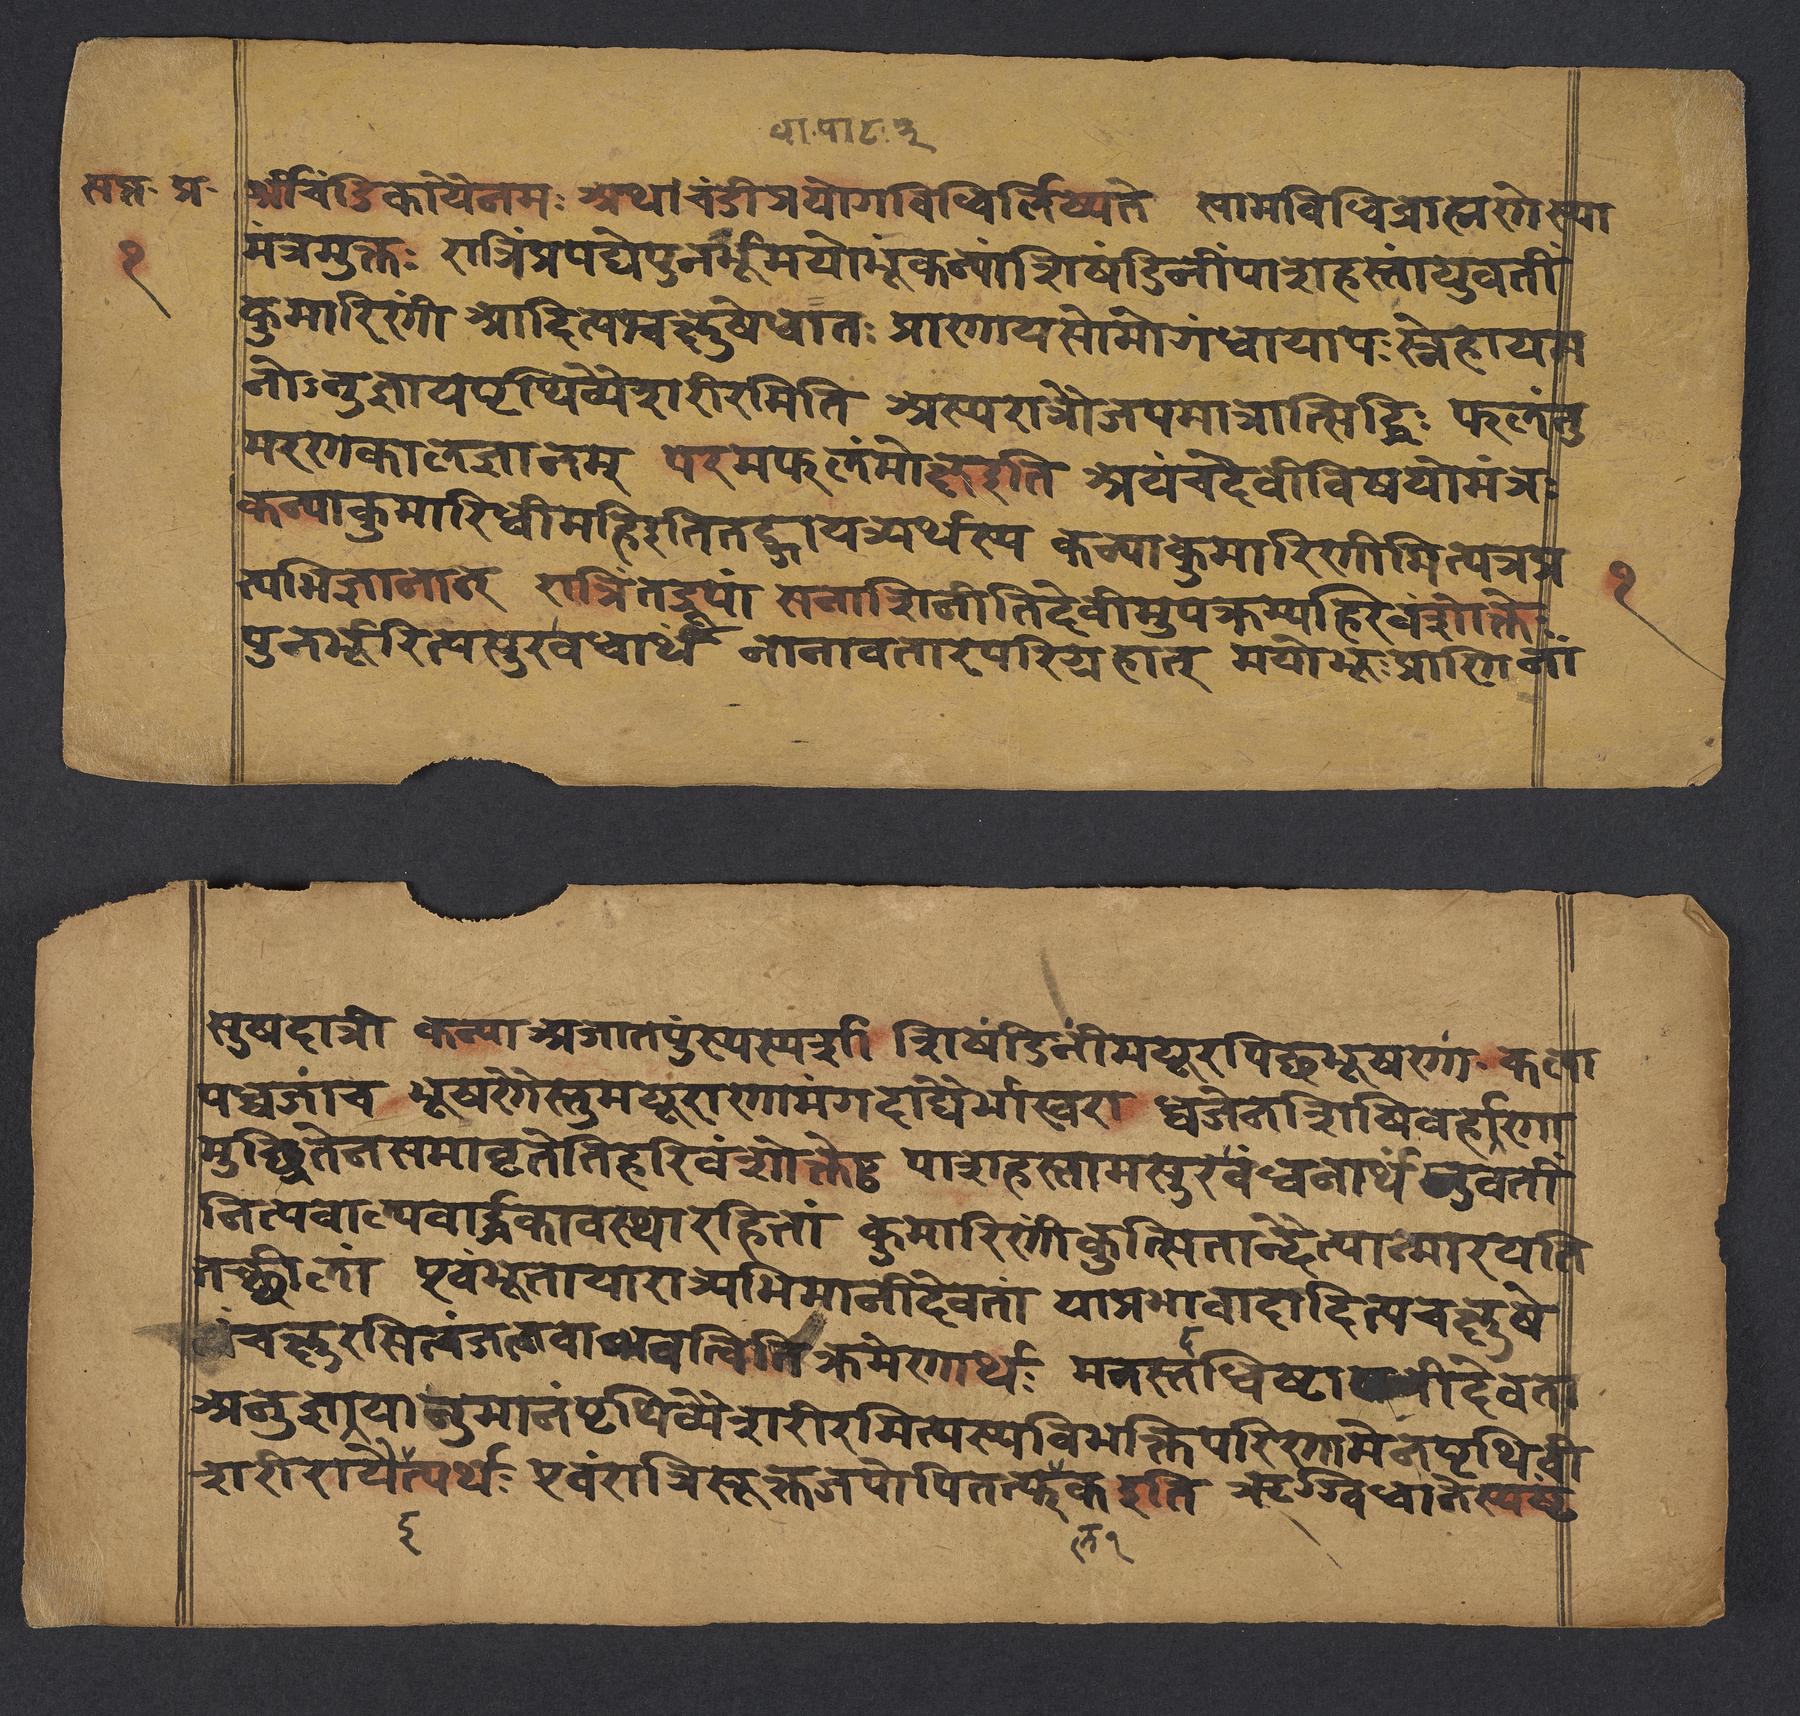 धा. पा ८. ३
सप्त. प्र.
१
श्रीचंडिकायैनमः अथाचंडीप्रयोगविधिर्लिख्यते सामविधिब्राह्मणेस्या
मंत्रमुक्तः रात्रिंप्रपद्येपुनर्भूमयोभूंकन्यांशिषंडिनींपाशहस्तांयुवतीं
कुमारिणीं आदित्यश्चक्षुषेवातः प्राणायसोमोगंधायापःस्नेहायम
नोऽनुज्ञायपृथिव्यैशरीरमिति अस्यरात्रौजपमात्रात्सिद्धिः फलंतु
मरणकालज्ञानम् परमफलंमोक्षइति अयंचदेवीविषयोमंत्रः
कन्याकुमारिधीमहिइतितद्गायत्र्यर्थस्य कन्याकुमारिणीमित्यत्रप्र
त्यभिज्ञानात् रात्रिंतद्रूपां सनाशिनीतिदेवीमुपक्रम्यहरिवंशोक्तेः
पुनर्भूरित्यसुरवधार्थं नानावतारपरिग्रहात् मयोभूःप्राणिनां
१
सुषदात्री कन्याअजातपुंस्यस्पर्शां शिषंडिनींमयूरपिछभूषणां कला
पध्वजांच भूषणैस्तुमयूराणामंगदाद्यैर्भास्वरा ध्वजेनशिषिवर्हाणा
मुछ्रितेनसमावृतेतिहरिवंशोक्तेः पाशहस्तामसुरवंधनार्थं युवतीं
नित्यवाल्यवार्द्धकावस्थारहितां कुमारिणींकुत्सितान्दैत्यान्मारयति
तच्छीलां एवंभूतायारात्र्यभिमानीदेवतां याप्रभावादादित्यचक्षुषे
चक्षुरसित्वंजलवाभवत्वितिक्रमेणार्थः मनस्तधिष्टात्रीदेवता
अनुज्ञायानुमानंपृथिव्यैशरीरमित्यस्यविभक्तिपरिणामेनपृथिवी
शरीरायैत्यर्थः एवंरात्रिसूक्तजपोपितत्फकइति ऋग्विधानेस्पष्टं